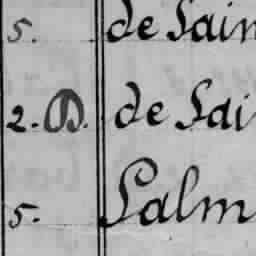 5. de Sain
2. D. de Sai
5. Salm